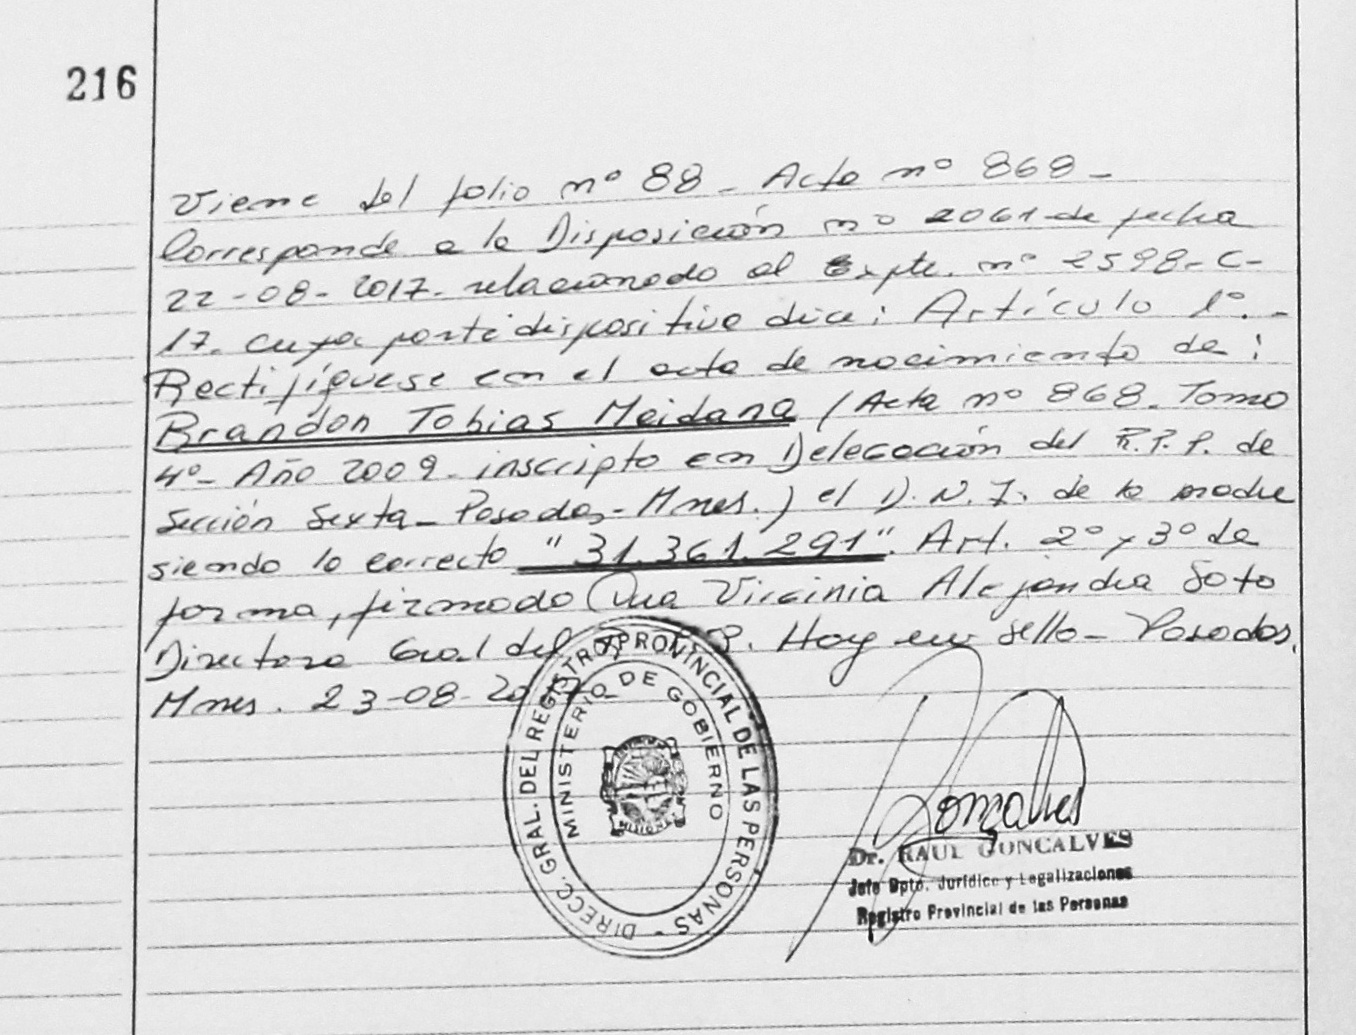 216
Viene del folio nº 88 - Acta nº 868 -
Corresponde a la Disposición nº 2061 de fecha
22-08-2017- relacionado al Expte. nº 2598-C-
17. cuya parte dispositiva dice: Artículo 1º.-
Rectifíquese en el acta de nacimiento de:
Brandon Tobias Meidana (Acta nº 868. Tomo
4º- Año 2009- inscripto en Delegación del R.P.P. de
Sección Sexta- Posadas-Mnes.) el D.N.I. de la madre
siendo lo correcto "31.361.291". Art. 2º y 3º de
forma, firmado Dra Virginia Alejandra Soto
Directora Gral del R.P.P. Hay un sello- Posadas.
Mnes. 23-08-2017-
DIRECC. GRAL. DEL REGISTRO PROVINCIAL DE LAS PERSONAS -
MINISTERIO DE GOBIERNO
MISIONES
Gonçalves
Dr. RAUL GONCALVES
Jefe Dpto. Jurídico y Legalizaciones
Registro Provincial de las Personas